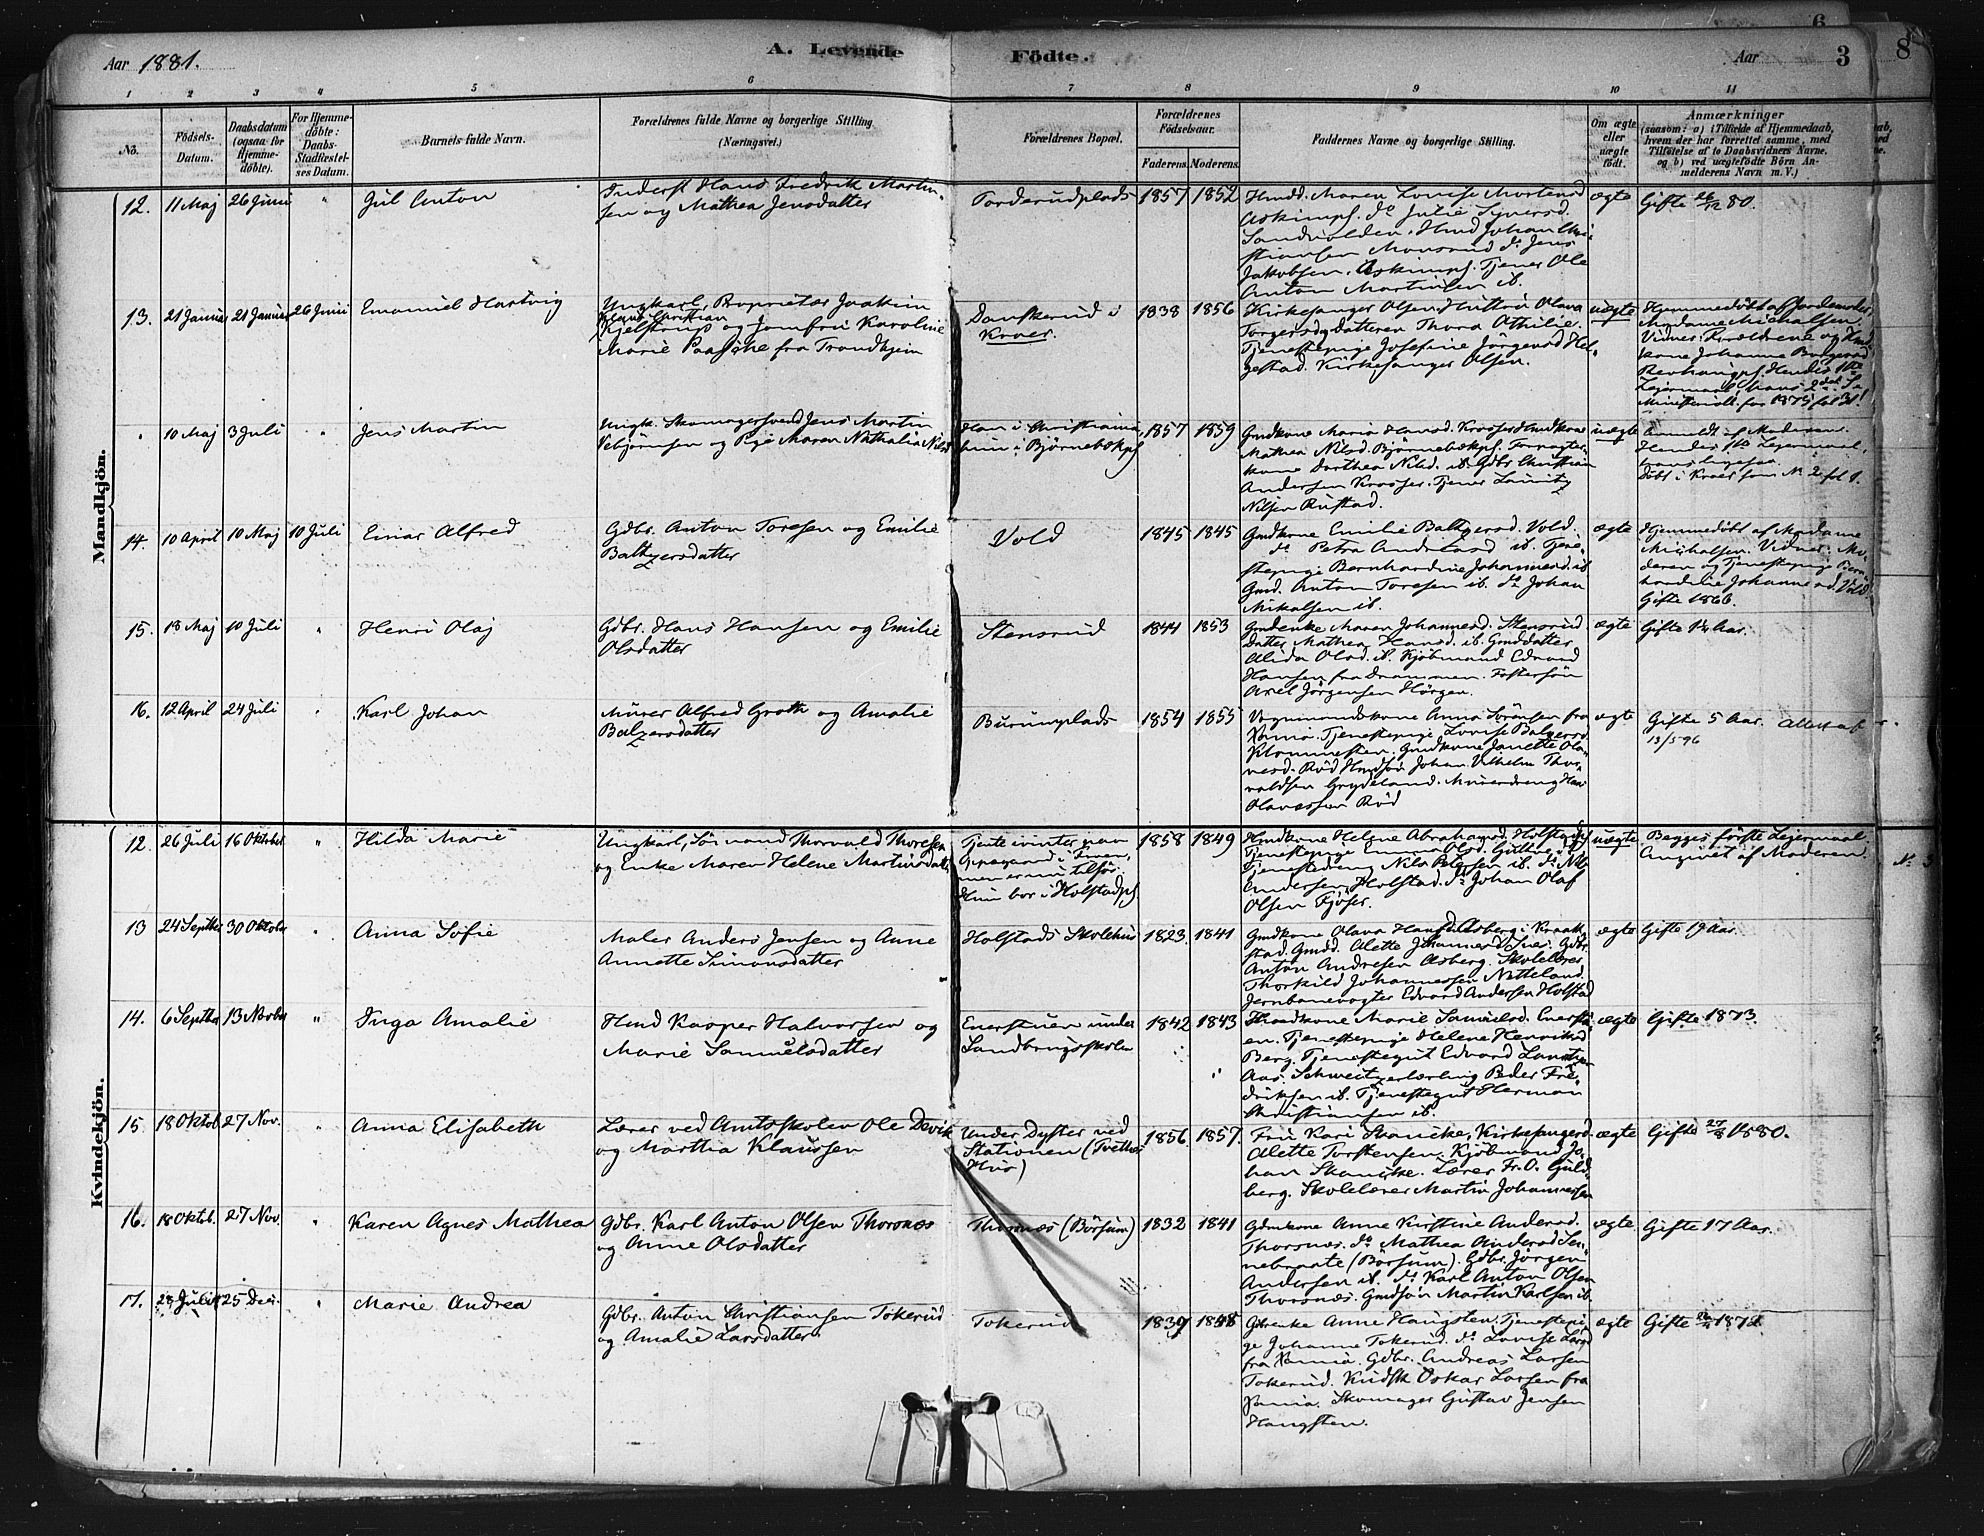 Aar 1881.
A. Levende
Fødte.
Aar
3
8
6
1 2 3 4 5 6 7 8 9 10 11
No.
Fødsels-
Datum.
Daabsdatum
(ogsaa for
Hjemme-
døbte).
For Hjemme-
døbte:
Daabs-
Stadfæstel-
ses Datum.
Barnets fulde Navn.
Forældrenes fulde Navne og borgerlige Stilling
(Næringsvei.)
Forældrenes Bopæl.
Forældrenes
Fødselsaar.
Faderens. Moderens.
Faddernes Navne og borgerlige Stilling.
Om ægte
eller
uægte
født.
Anmærkninger
(saasom: a) i Tilfælde af Hjemmedaab,
hvem der har forrettet samme, med
Tilføielse af to Daabsvidners Navne,
og b) ved uægtefødte Børn An-
melderens Navn m. V.)
Mandkjön.
12. 11 Maj 26 Juni " Jul Anton
Inderst Hans Fredrik Martin-
sen og Mathea Jensdatter
1857 1852
Hmdd. Maren Lovise Mortensd
Askimpl. do Julie Syversd.
Sandvolden. Hmd Johan Chri-
stiansen Monsrud do Jens
Jakobsen. Askimpl. Tjener Ole
Anton Martinsen ib.
ægte
Gifte 26/12 80.
13. 21 Januar 21 Januar 26 Juni Emanuel Hartvig
Ungkarl, Proprietær Joakim
Claus Christian
Kjelstrup og Jomfru Karoline
Marie Paasche fra Trondhjem
Danskerud i
Kroer.
1838 1856
Kirkesanger Olsen. Olava
Torgersdg datteren Thora Othilie.
Tjenestepige Josefine Jörgensd Hel-
gestad. Kirkesanger Olsen.
uægte
Hjemmedøbt af Jordemoder
Madame Michalsen
Vidner: Forældrene og
Johanne
Hendes 1ste
Lejermaal, hans 2det. Se
Ministerialb. for 1875 fol 31!
" 10 Maj 3 Juli " Jens Martin
Ungk. Skomagersvend Jens Martin
Vebjørnsen og Pige Maren Nathalia Nilsd
Han i Christiania
hun i Bjørnebækpl
1857 1859
Gmdkone Maria Hansd. Kroosser Hmdkone
Mathea Nilsd. Bjørnebækpl. Forpagter-
kone Dorthea Nilsd. ib. Gdbr Christian
Andersen Krosser. Tjener Lauritz
Nilsen Rustad.
uægte
Anmeldt af Moderen.
Hendes 1ste Lejermaal,
hans ligesaa.
Døbt i Kroer som No 2 fol 1.
14. 10 April 10 Maj 10 Juli Einar Alfred
Gdbr. Anton Toresen og Emilie
Baltzersdatter
Vold
1845 1845
Gmdkone Emilie Baltzersd. Vold.
do Petra Andreasd ib. Tjene-
stepige Bernhardine Johannesd. ib
Gmd. Anton Toresen ib. do Johan
Mikalsen ib.
ægte
Hjemmedøbt af Madame
Michalsen. Vidner: Mo-
deren og Tjenestepige Bern-
hardine Johannesd. Vold.
Gifte 1866.
15. 18 Maj 10 Juli " Henri Olaj
Gdbr. Hans Hansen og Emilie
Olsdatter
Stensrud
1844 1853
Gmdenke Maren Johannesd. Stensrud
Datter Mathea Hansd. ib. Gmddatter
Alida Olsd. ib. Kjöbmand Edvard
Hansen fra Drammen. Fostersön
Axel Jörgensen Hörgen.
ægte
Gifte 1½ Aar.
16. 12 April 24 Juli " Karl Johan
Murer Alfred Groth og Amalie
Balzersdatter
Burumplads
1854 1855
Vognmandskone Anna Sörensen fra
Xania. Tjenestepige Lovise Balzersd
Klommesten. Gmdkone Janette Ola-
vesd. Röd Hmdsön Johan Vilhelm Thor-
valdsen Grydeland. Murerdreng Hans
Olavessen Röd
ægte
Gifte 5 Aar. Attest af
13/5 96
Kvindekjön.
12. 26 Juli 16 Oktober " Hilda Marie
Ungkarl, Sømand Thorvald Thoresen
og Enke Maren Helene Martinsdatter
Tjente ivinter paa
i Finn-
men er nu tilsjøs
Hun bor i Holstadpl
1858 1849
Hmdkone Helene Abrahamsd. Holstadpl
Tjenestepige Emma Olsd.
Tjenestedreng Nils Petersen ib. do Nils
Andersen, Holstad. do Johan Olaf
Olsen Kjöser.
uægte
Begges förste Lejermaal
Angivet af Moderen.
13 24 Septbr 30 Oktober " Anna Sofie
Maler Anders Jensen og Anne
Annette Simonsdatter
Holstads Skolehus
1823. 1841
Gmdkone Olava Hansd Asberg i Kraak-
stad. Gmdd. Alette Johannesd Svei. Gdbr.
Anton Andresen Asberg. Skolelærer
Thorkild Johannessen Nitteland.
Jernbanevogter Edvard Andersen Holstad
ægte
Gifte 19 Aar.
14. 6 Septbr 13 Novbr " Inga Amalie
Hmd Kasper Halvorsen og
Marie Samuelsdatter
Enerstuen under
Landbrugsskolen
1842 1843
Hmdkone Marie Samuelsd. Enerstu-
en. Tjenestepige Helene Henriksd
Berg. Tjenestegut Edvard Lauritzen
Aas. Schweitzerlærling Peder Fre-
driksen ib. Tjenestegut Herman
Christiansen ib.
ægte
Gifte 1873.
15 18 Oktob. 27 Nov. " Anna Elisabeth
Lærer ved Amtsskolen Ole Devik
og Martha Klaussen
Under Dyster ved
Stationen (Tveters
Hus)
1856. 1857.
Fru Kari Skancke, Kirkesangerd.
Alette Torstensen. Kjöbmand Jo-
han Skancke. Lærer Fr. O. Guld-
berg. Skolelærer Martin Johannessen
ægte
Gifte 27/8 1880.
16. 18 Oktob. 27 Nov. " Karen Agnes Mathea
Gdbr. Karl Anton Olsen Thorsnæs
og Anne Olsdatter
Thorsnæs (Börsum)
1832 1841
Gdmkone Anne Kirstine Andersd.
Thorsnæs. do Mathea Andersd Sen-
nebraate (Börsum). Gdbr. Jörgen
Andersen ib. do Karl Anton Olsen
Thorsnæs. Gmdsön Martin Karlsen ib.
ægte
Gifte 17 Aar.
17. 28 Juli 25 Dec. " Marie Andrea
Gdbr. Anton Christiansen Tokerud
og Amalie Larsdatter.
Tokerud
1839 1848
Gdbrenke Anne Haugsten. Tjenestepi-
ge Johanne Tokerud. do Lovise Larsd
fra Xania. Gdbr. Andreas Larsen
Tokerud. Kudsk Oskar Larsen fra
Xania. Skomager Gustav Jensen
Haugsten.
ægte